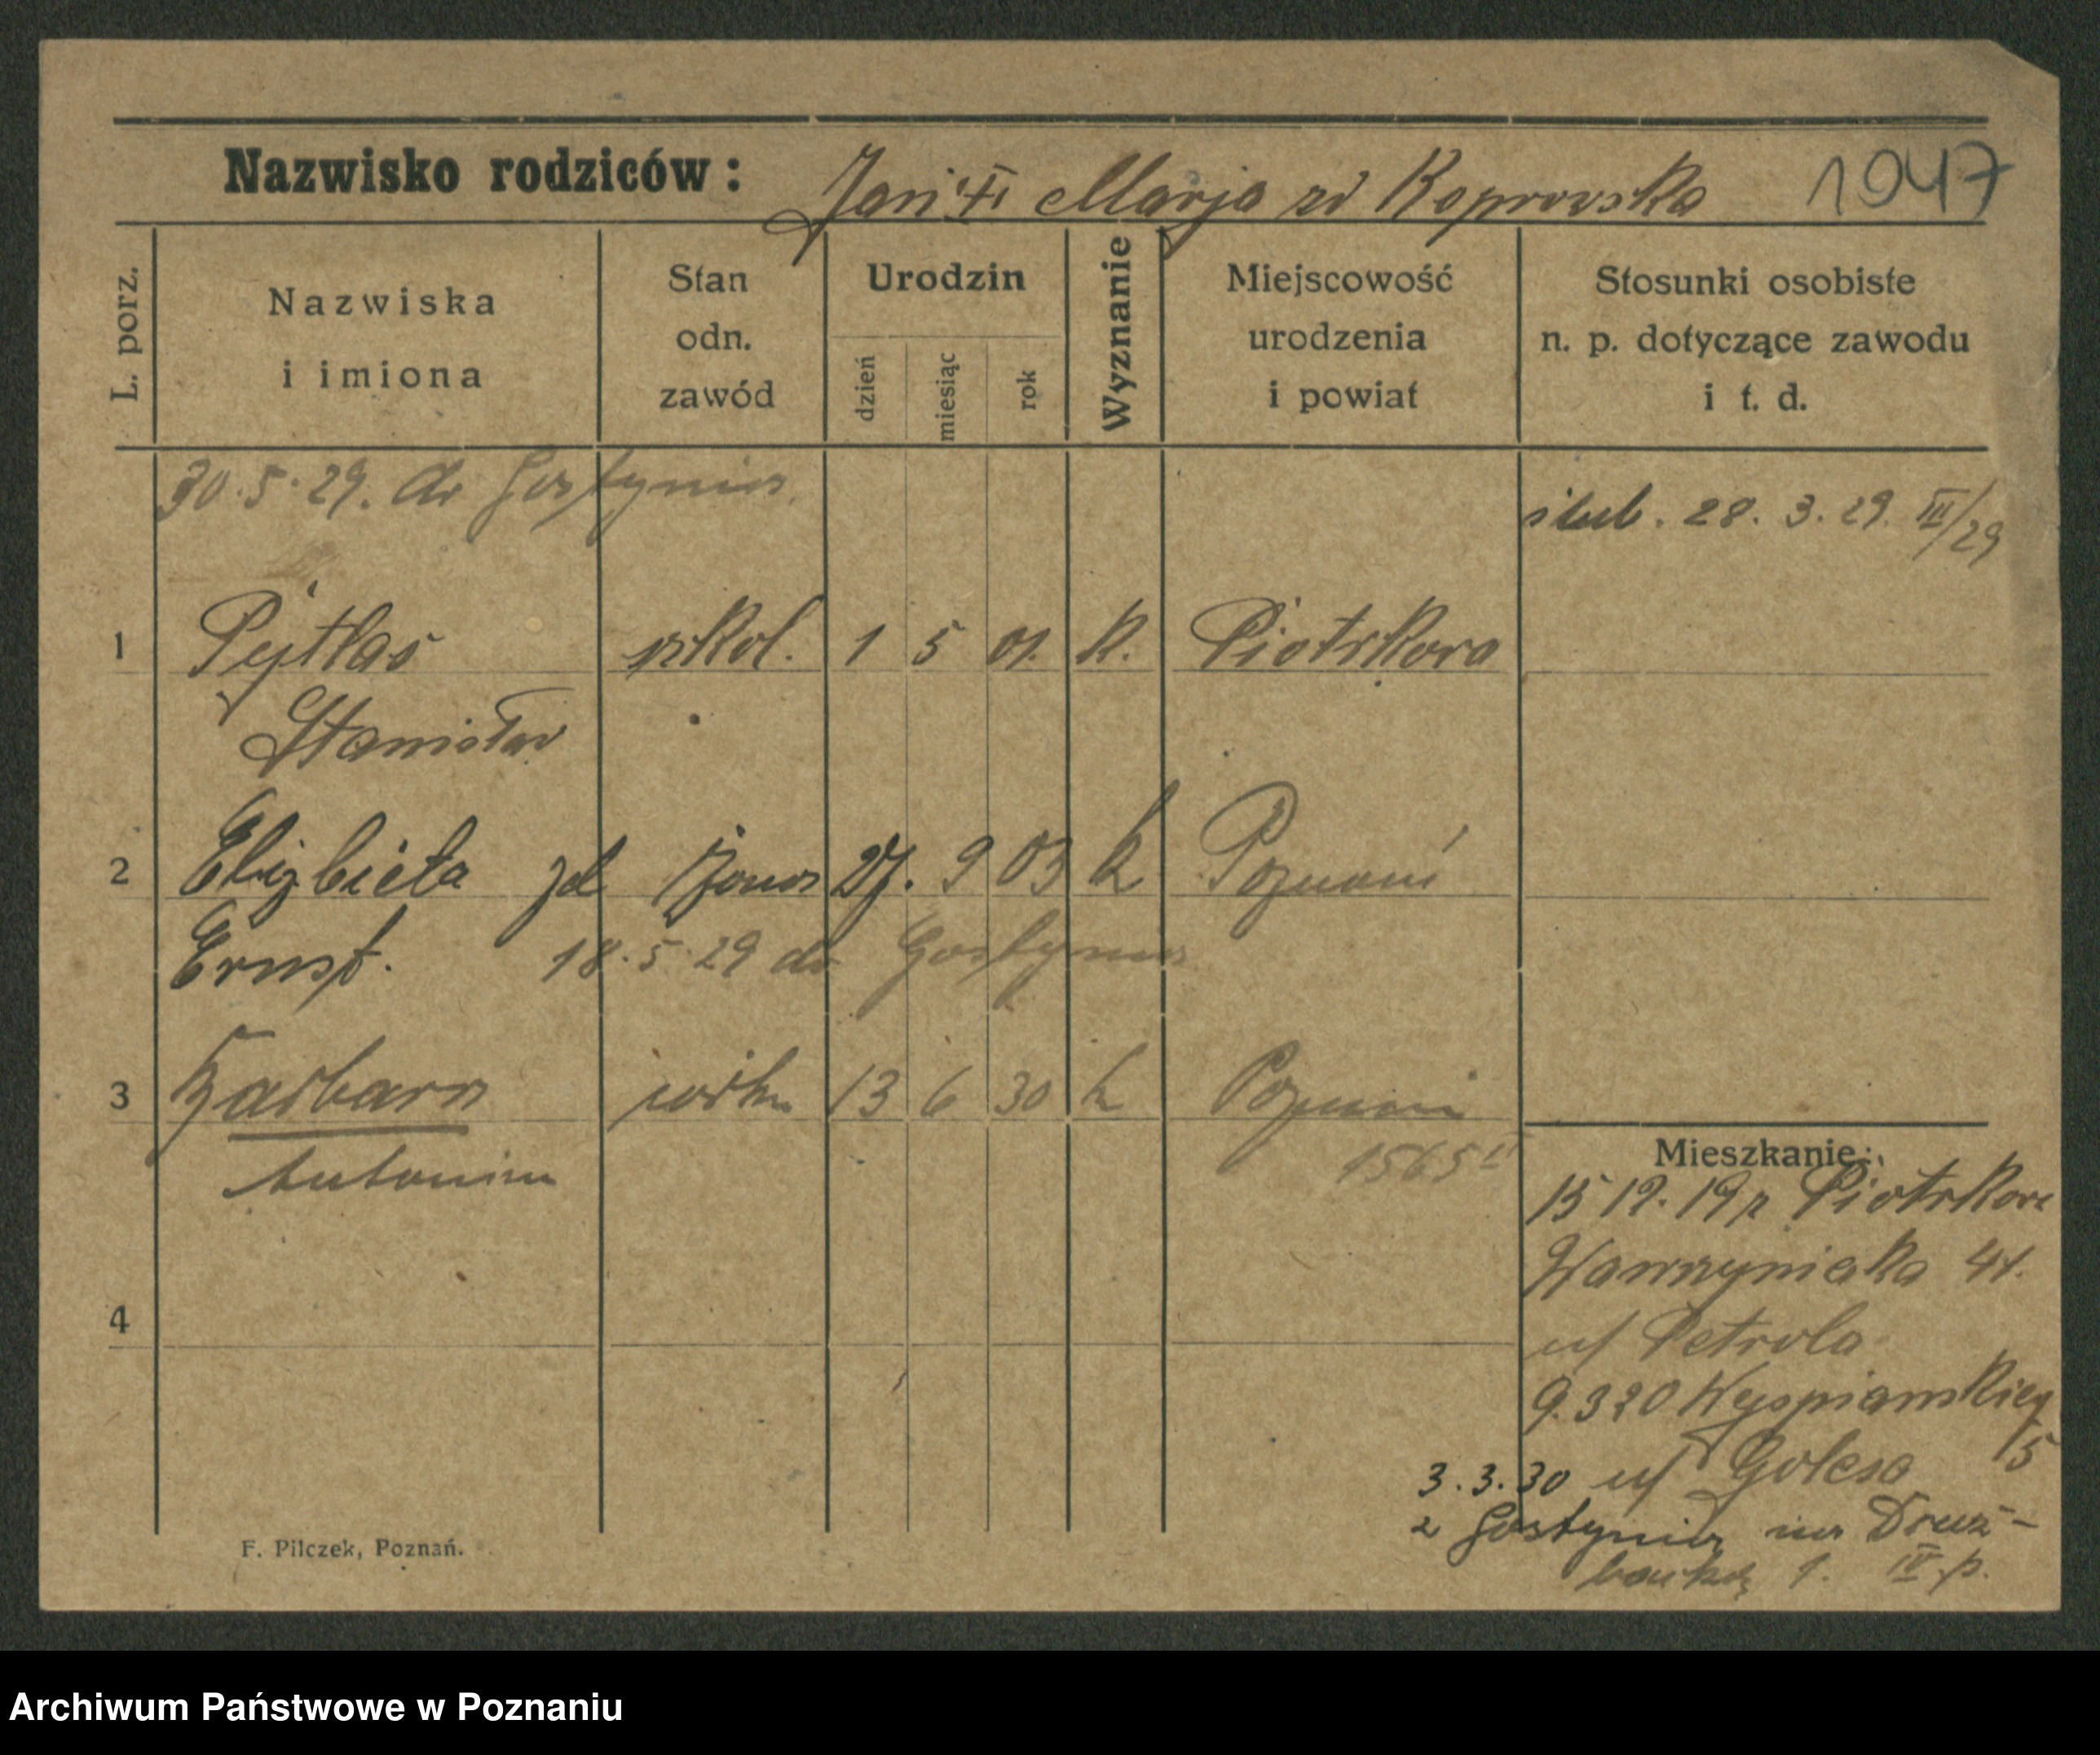 Nazwisko rodziców: Jan i Marja zd Koprowska 1947
L. porz.
Nazwiska i imiona
Stan odn. zawód
Urodzin
dzień miesiąc rok
Wyznanie
Miejscowość urodzenia i powiat
Stosunki osobiste n. p. dotyczące zawodu i t. d.
30.5.29. do Gostynia
ślub. 28. 3. 29. III/29
1 Pytlas 1 5 01. k. Piotrkowa
Stanisław
2 Elżbieta zd 27. 9 03 k Poznań
Ernst. 18.5.29 do Gostynia
3 Barbara córka 13 6 30 k Poznań
Antonina 1565
4
Mieszkanie:
15 12. 19 z Piotrkowa
Wawrzyniaka 41.
u/ Petrola
9.3 20 Wyspiańskieg
15
3.3.30 u/ Golesa
z Gostynia na Druż-
backą 1. IV p.
F. Pilczek, Poznań.
Archiwum Państwowe w Poznaniu